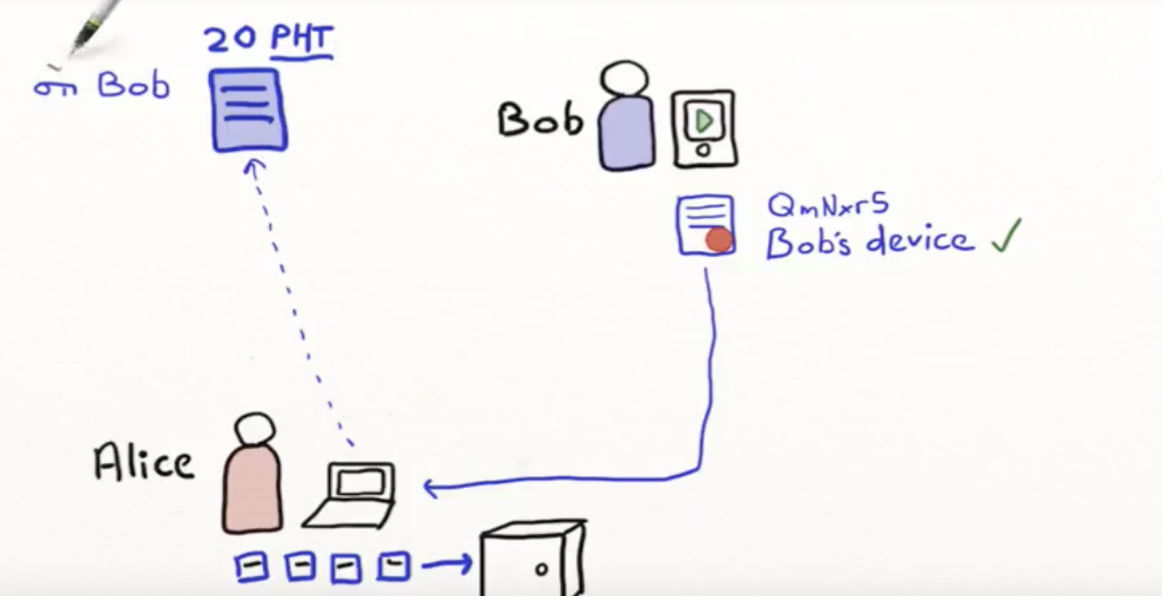 20 PHT
on Bob
Bob
QmNxr5
Bob's device ✓
Alice